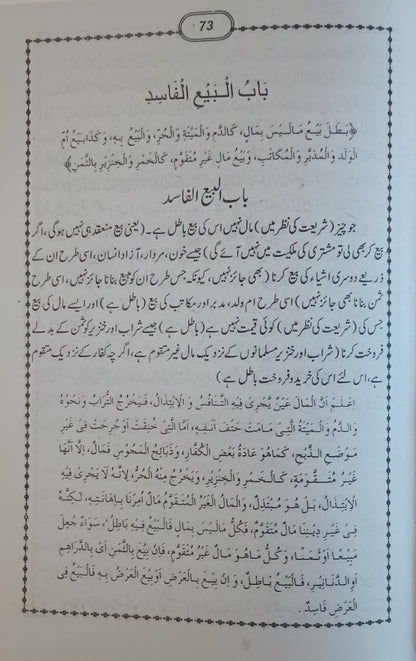 73
بَابُ الْبَيْعِ الْفَاسِدِ
﴿بَطَلَ بَيْعُ مَالَيْسَ بِمَالٍ، كَالدَّمِ وَالْمَيْتَةِ وَالْحُرِّ، وَالْبَيْعُ بِهِ، وَكَذَابَيْعُ اُمِّ
الْوَلَدِ وَالْمُدَبَّرِ وَالْمُكَاتَبِ، وَبَيْعُ مَالٍ غَيْرِ مُتَقَوَّمٍ، كَالْخَمْرِ وَالْخِنْزِيْرِ بِالثَّمَنِ﴾
باب البیع الفاسد
جو چیز (شریعت کی نظر میں) مال نہیں اس کی بیع باطل ہے۔ (یعنی بیع منعقد ہی نہیں ہوگی، اگر
بیع کر بھی لی تو مشتری کی ملکیت میں نہیں آئے گی) جیسے خون، مردار، آزاد انسان، اسی طرح ان کے
ذریعے دوسری اشیاء کی بیع کرنا (بھی جائز نہیں، کیونکہ جس طرح ان کو مبیع بنانا جائز نہیں، اسی طرح
ثمن بنانا بھی جائز نہیں) اسی طرح ام ولد، مدبر اور مکاتب کی بیع (باطل ہے) اور ایسے مال کی بیع
جس کی (شریعت کی نظر میں) کوئی قیمت نہیں ہے (باطل ہے) جیسے شراب اور خنزیر کو ثمن کے بدلے
فروخت کرنا (شراب اور خنزیر مسلمانوں کے نزدیک مال غیر متقوم ہے، اگرچہ کفار کے نزدیک متقوم
ہے، اس لئے اس کی خرید و فروخت باطل ہے)
اِعْلَمْ اَنَّ الْمَالَ عَيْنٌ يَجْرِيْ فِيْهِ التَّنَافُسُ وَ الْاِبْتِذَالُ، فَيَخْرُجُ التُّرَابُ وَنَحْوُهُ
وَالدَّمُ وَالْمَيْتَةُ الَّتِيْ مَاتَتْ حَتْفَ اَنْفِهِ، اَمَّا الَّتِيْ خُنِقَتْ اَوْ جُرِحَتْ فِيْ غَيْرِ
مَوْضَعِ الذَّبْحِ، كَمَا هُوَ عَادَةُ بَعْضِ الْكُفَّارِ، وَذَبَائِحُ الْمَجُوْسِ فَمَالٌ، اِلَّا اَنَّهَا
غَيْرُ مُتَقَوَّمَةٍ، كَالْخَمْرِ وَالْخِنْزِيْرِ، وَيَخْرُجُ مِنْهُ الْحُرُّ، لِاَنَّهُ لَا يَجْرِيْ فِيْهِ
الْاِبْتِذَالُ، بَلْ هُوَ مُبْتَذِلٌ، وَالْمَالُ الْغَيْرُ الْمُتَقَوَّمِ مَالٌ اُمِرْنَا بِاِهَانَتِهِ، لٰكِنَّهُ
فِيْ غَيْرِ دِيْنِنَا مَالٌ مُتَقَوَّمٌ، فَكُلُّ مَالَيْسَ بِمَالٍ فَالْبَيْعُ فِيْهِ بَاطِلٌ، سَوَاءٌ جُعِلَ
مَبِيْعًا اَوْ ثَمَنًا، وَكُلُّ مَاهُوَ مَالٌ غَيْرُ مُتَقَوَّمٍ، فَاِنْ بِيْعَ بِالثَّمَنِ اَیْ بِالدَّرَاهِمِ
اَوِ الدَّنَانِيْرِ، فَالْبَيْعُ بَاطِلٌ، وَ اِنْ بِيْعَ بِالْعَرْضِ اَوْ بِيْعَ الْعَرْضُ بِهِ فَالْبَيْعُ فِی
الْعَرْضِ فَاسِدٌ۔